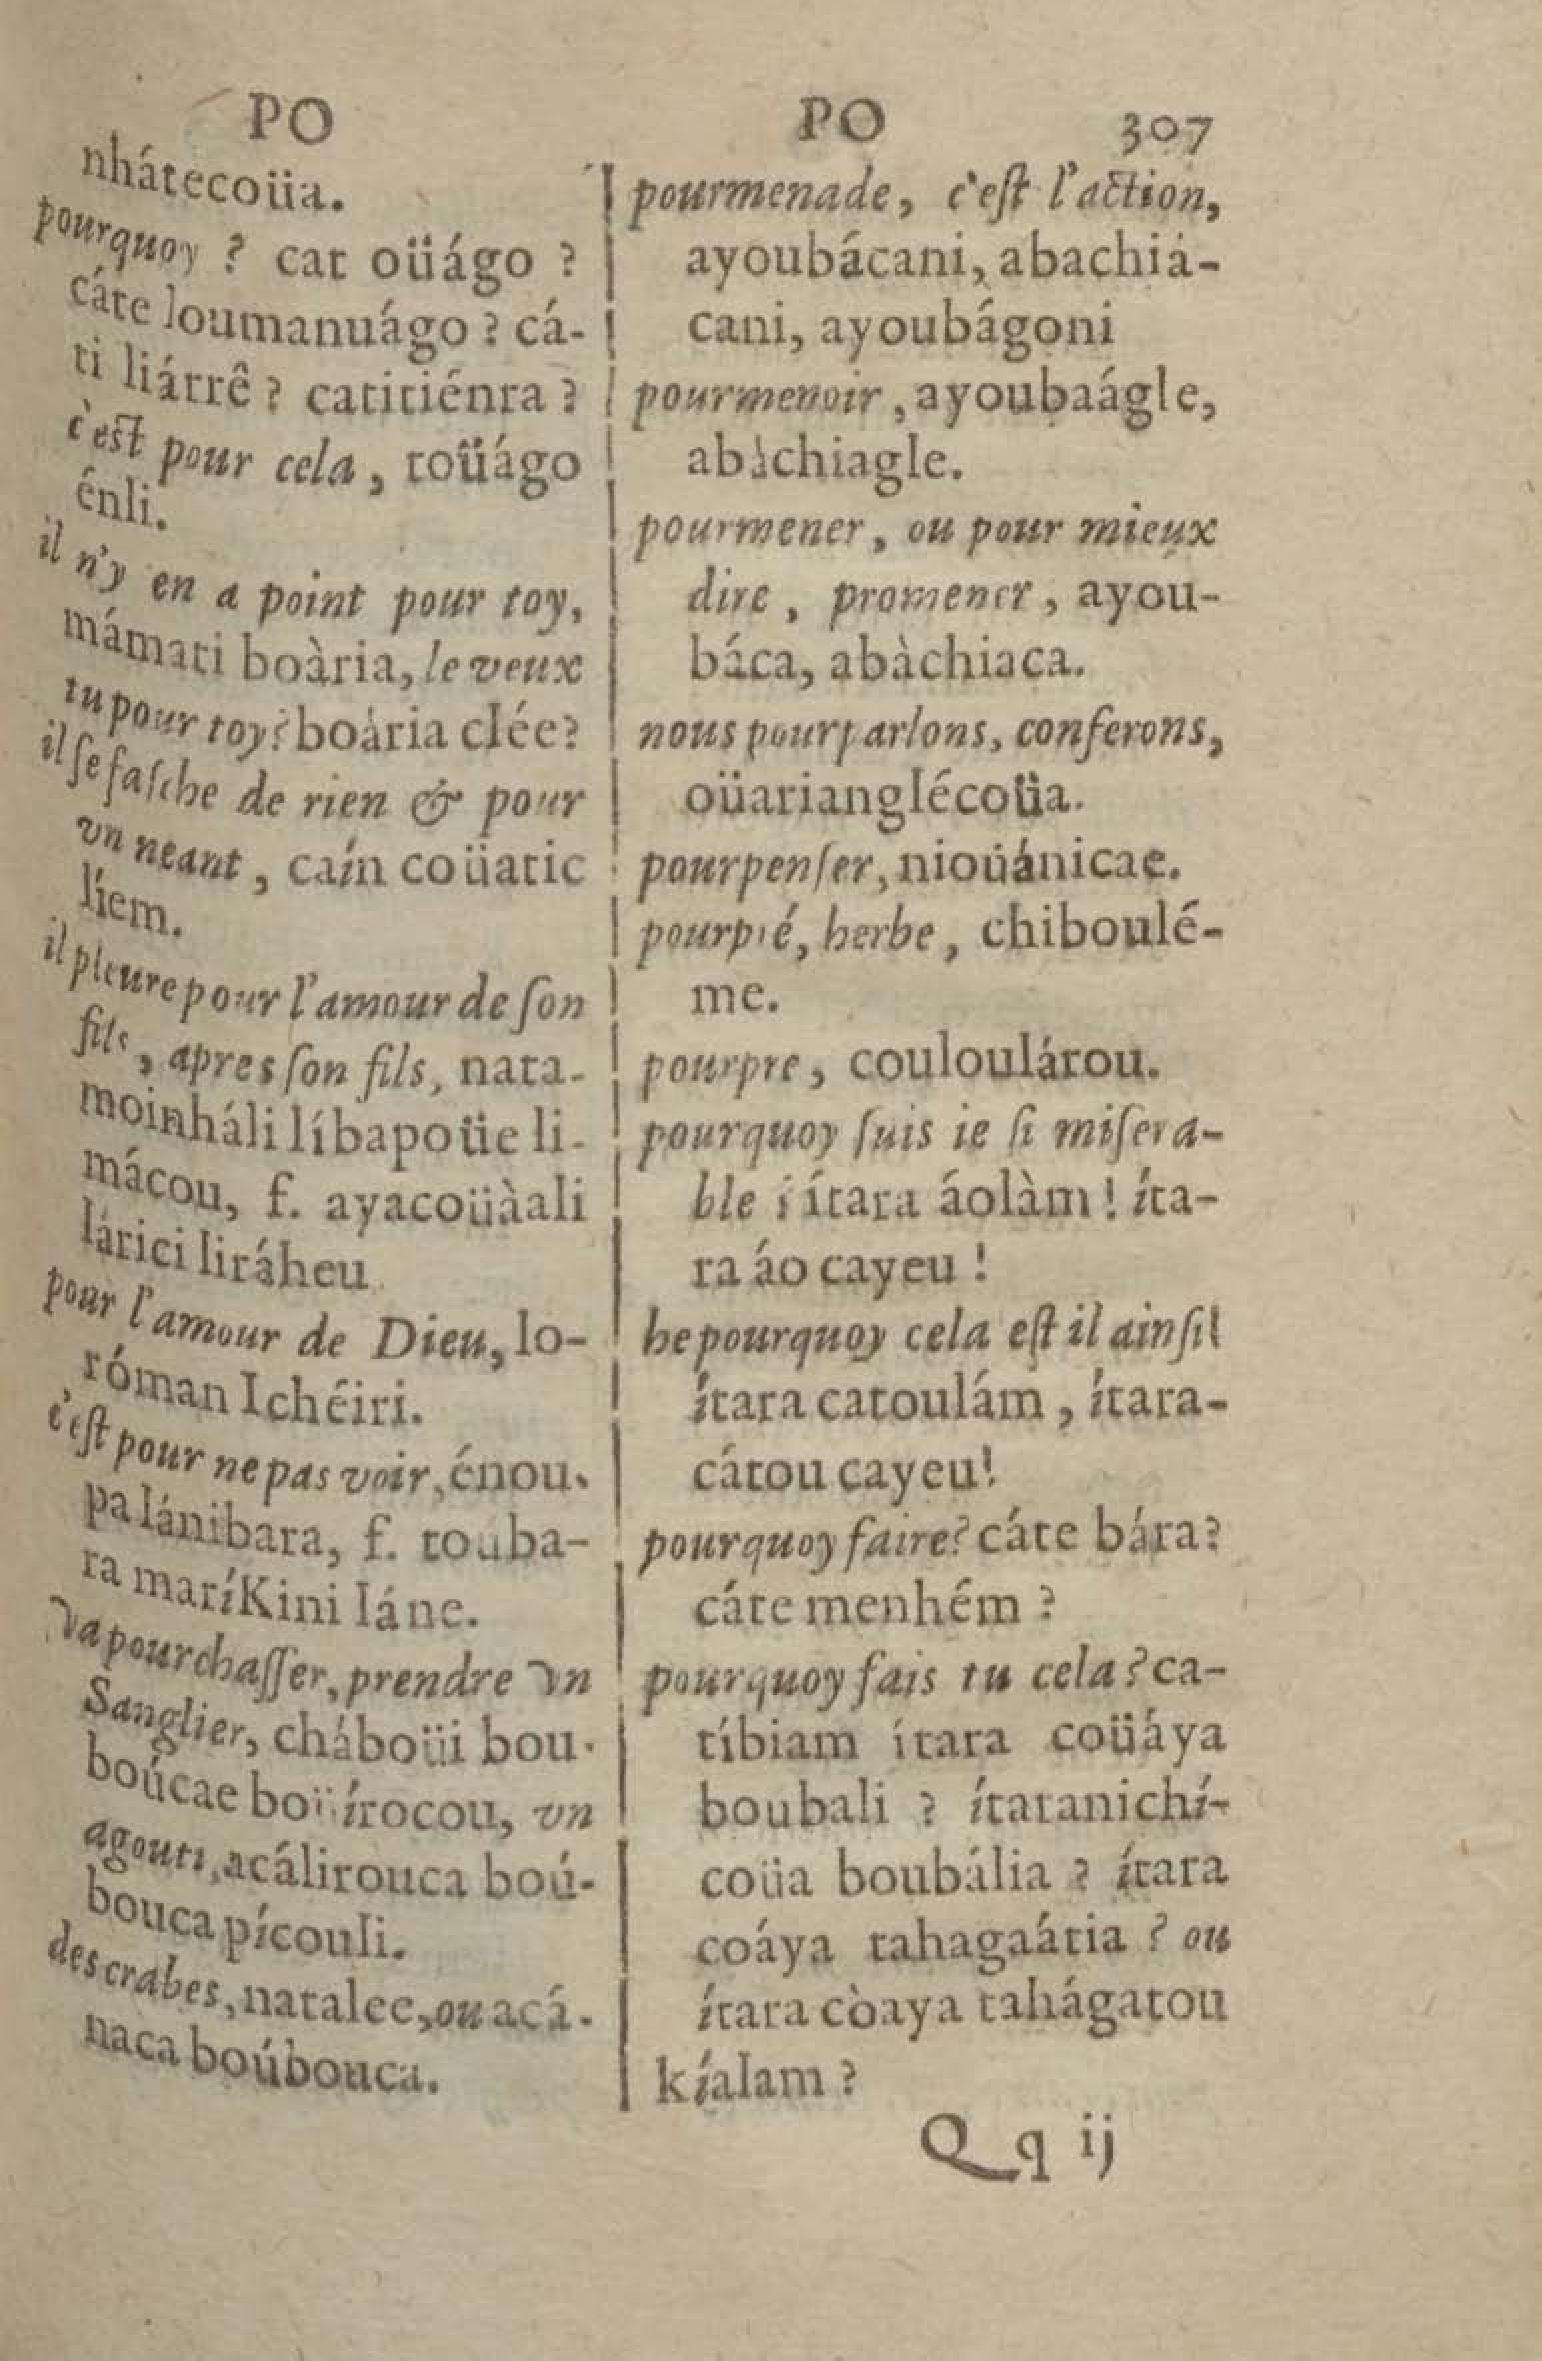 PO
nhátecoüa.
pourquoy ? cat oüágo ?
cáte loumanuágo ? cá-
ti liátrê ? catitiénra ?
c'est pour cela, toüágo
énli.
il n'y en a point pour toy,
mámati boària, le veux
tu pour toy? boària clée?
il ſe faſche de rien & pour
vn neant, caín coüatic
líem.
il pleure pour l'amour de ſon
fils, apres ſon fils, nata-
moinháli líbapoüe li-
mácou, f. ayacoüàali
lárici liráheu
pour l'amour de Dieu, lo-
róman Ichéiri.
c'eſt pour ne pas voir, énou-
pa lánibara, f. touba-
ra maríKini láne.
Va pourchaſſer, prendre vn
Sanglier, cháboüi bou-
boúcae boüírocou, vn
agouti, acálirouca boú-
bouca pícouli.
des crabes, natalee, ou acá-
naca boúbouca.
PO 307
pourmenade, c'eſt l'action,
ayoubácani, abachiá-
cani, ayoubágoni
pourmenoir, ayoubaágle,
abàchiagle.
pourmener, ou pour mieux
dire, promener, ayou-
báca, abàchiaca.
nous pourparlons, conferons,
oüarianglécoüa.
pourpenſer, nioüánicae.
pourpié, herbe, chiboulé-
me.
pourpre, couloulátou.
pourquoy ſuis ie ſi miſera-
ble ! ítara áolàm ! íta-
ra áo cayeu !
he pourquoy cela eſt il ainſi!
ítara catoulám, ítara-
cátou cayeu!
pourquoy faire? cáte bára?
cáte menhém ?
pourquoy fais tu cela? ca-
tíbiam ítara coüáya
boubali ? ítaranichí-
coüa boubália ? ítara
coáya tahagaátia ? ou
ítara còaya tahágatou
kíalam ?
Qq ij